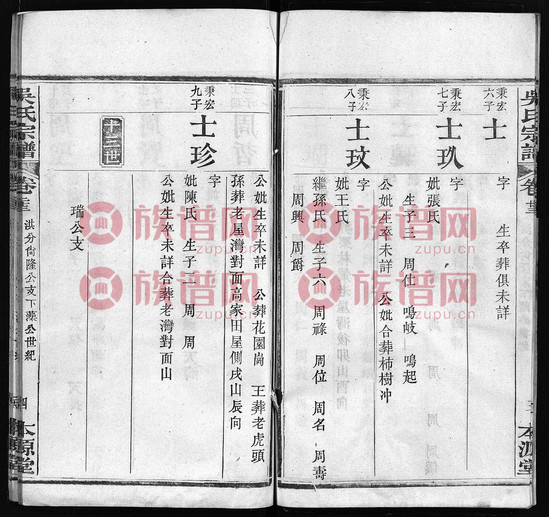 吳氏宗譜
卷
秉宏
六子
士
字
生卒葬俱未詳
秉宏
七子
士玖
字
妣張氏
生子三 周仕 鳴岐 鳴起
公妣生卒未詳 公妣合葬柿樹冲
秉宏
八子
士玟
字
妣王氏
繼孫氏 生子六 周祿 周位 周名 周壽
周興 周爵
本源堂
公妣生卒未詳 公葬花園崗 王葬老虎頭
孫葬老屋灣對面高家田屋側戌山辰向
秉宏
九子
士珍
字
妣陳氏 生子二 周 周
公妣生卒未詳合葬老灣對面山
十三世
瑞公支
吳氏宗譜
卷
淇分尙隆公支下藻公世紀
本源堂
族谱网
zupu.cn
族谱网
zupu.cn
族谱网
zupu.cn
族谱网
zupu.cn